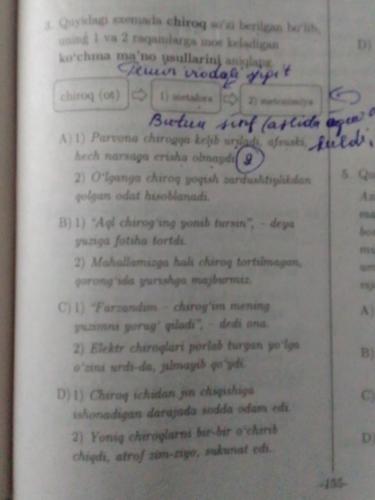 3. Quyidagi sxemada chiroq so'zi berilgan bo'lib,
uning 1 va 2 raqamlarga mos keladigan
ko'chma ma'no usullarini aniqlang.
chiroq (ot)
1) metafora
2) metonimiya
Butun sinf
A) 1) Parvona chiroqqa kelib uriladi, afsuski,
hech narsaga erisha olmaydi.
kuldi.
2) O'lganga chiroq yoqish zardushtiylikdan
qolgan odat hisoblanadi.
B) 1) "Aql chirog'ing yonib tursin", - deya
yuziga fotiha tortdi.
2) Mahallamizga hali chiroq tortilmagan,
qorong'ida yurishga majburmiz.
C) 1) "Farzandim - chirog'im mening
yuzimni yorug' qiladi", - dedi ona.
2) Elektr chiroqlari porlab turgan yo'lga
o'zini urdi-da, jilmayib qo'ydi.
D) 1) Chiroq ichidan jin chiqishiga
ishonadigan darajada sodda odam edi.
2) Yoniq chiroqlarni bir-bir o'chirib
chiqdi, atrof zim-ziyo, sukunat edi.
D)
5. Qu
A)
B)
C)
D)
-135-